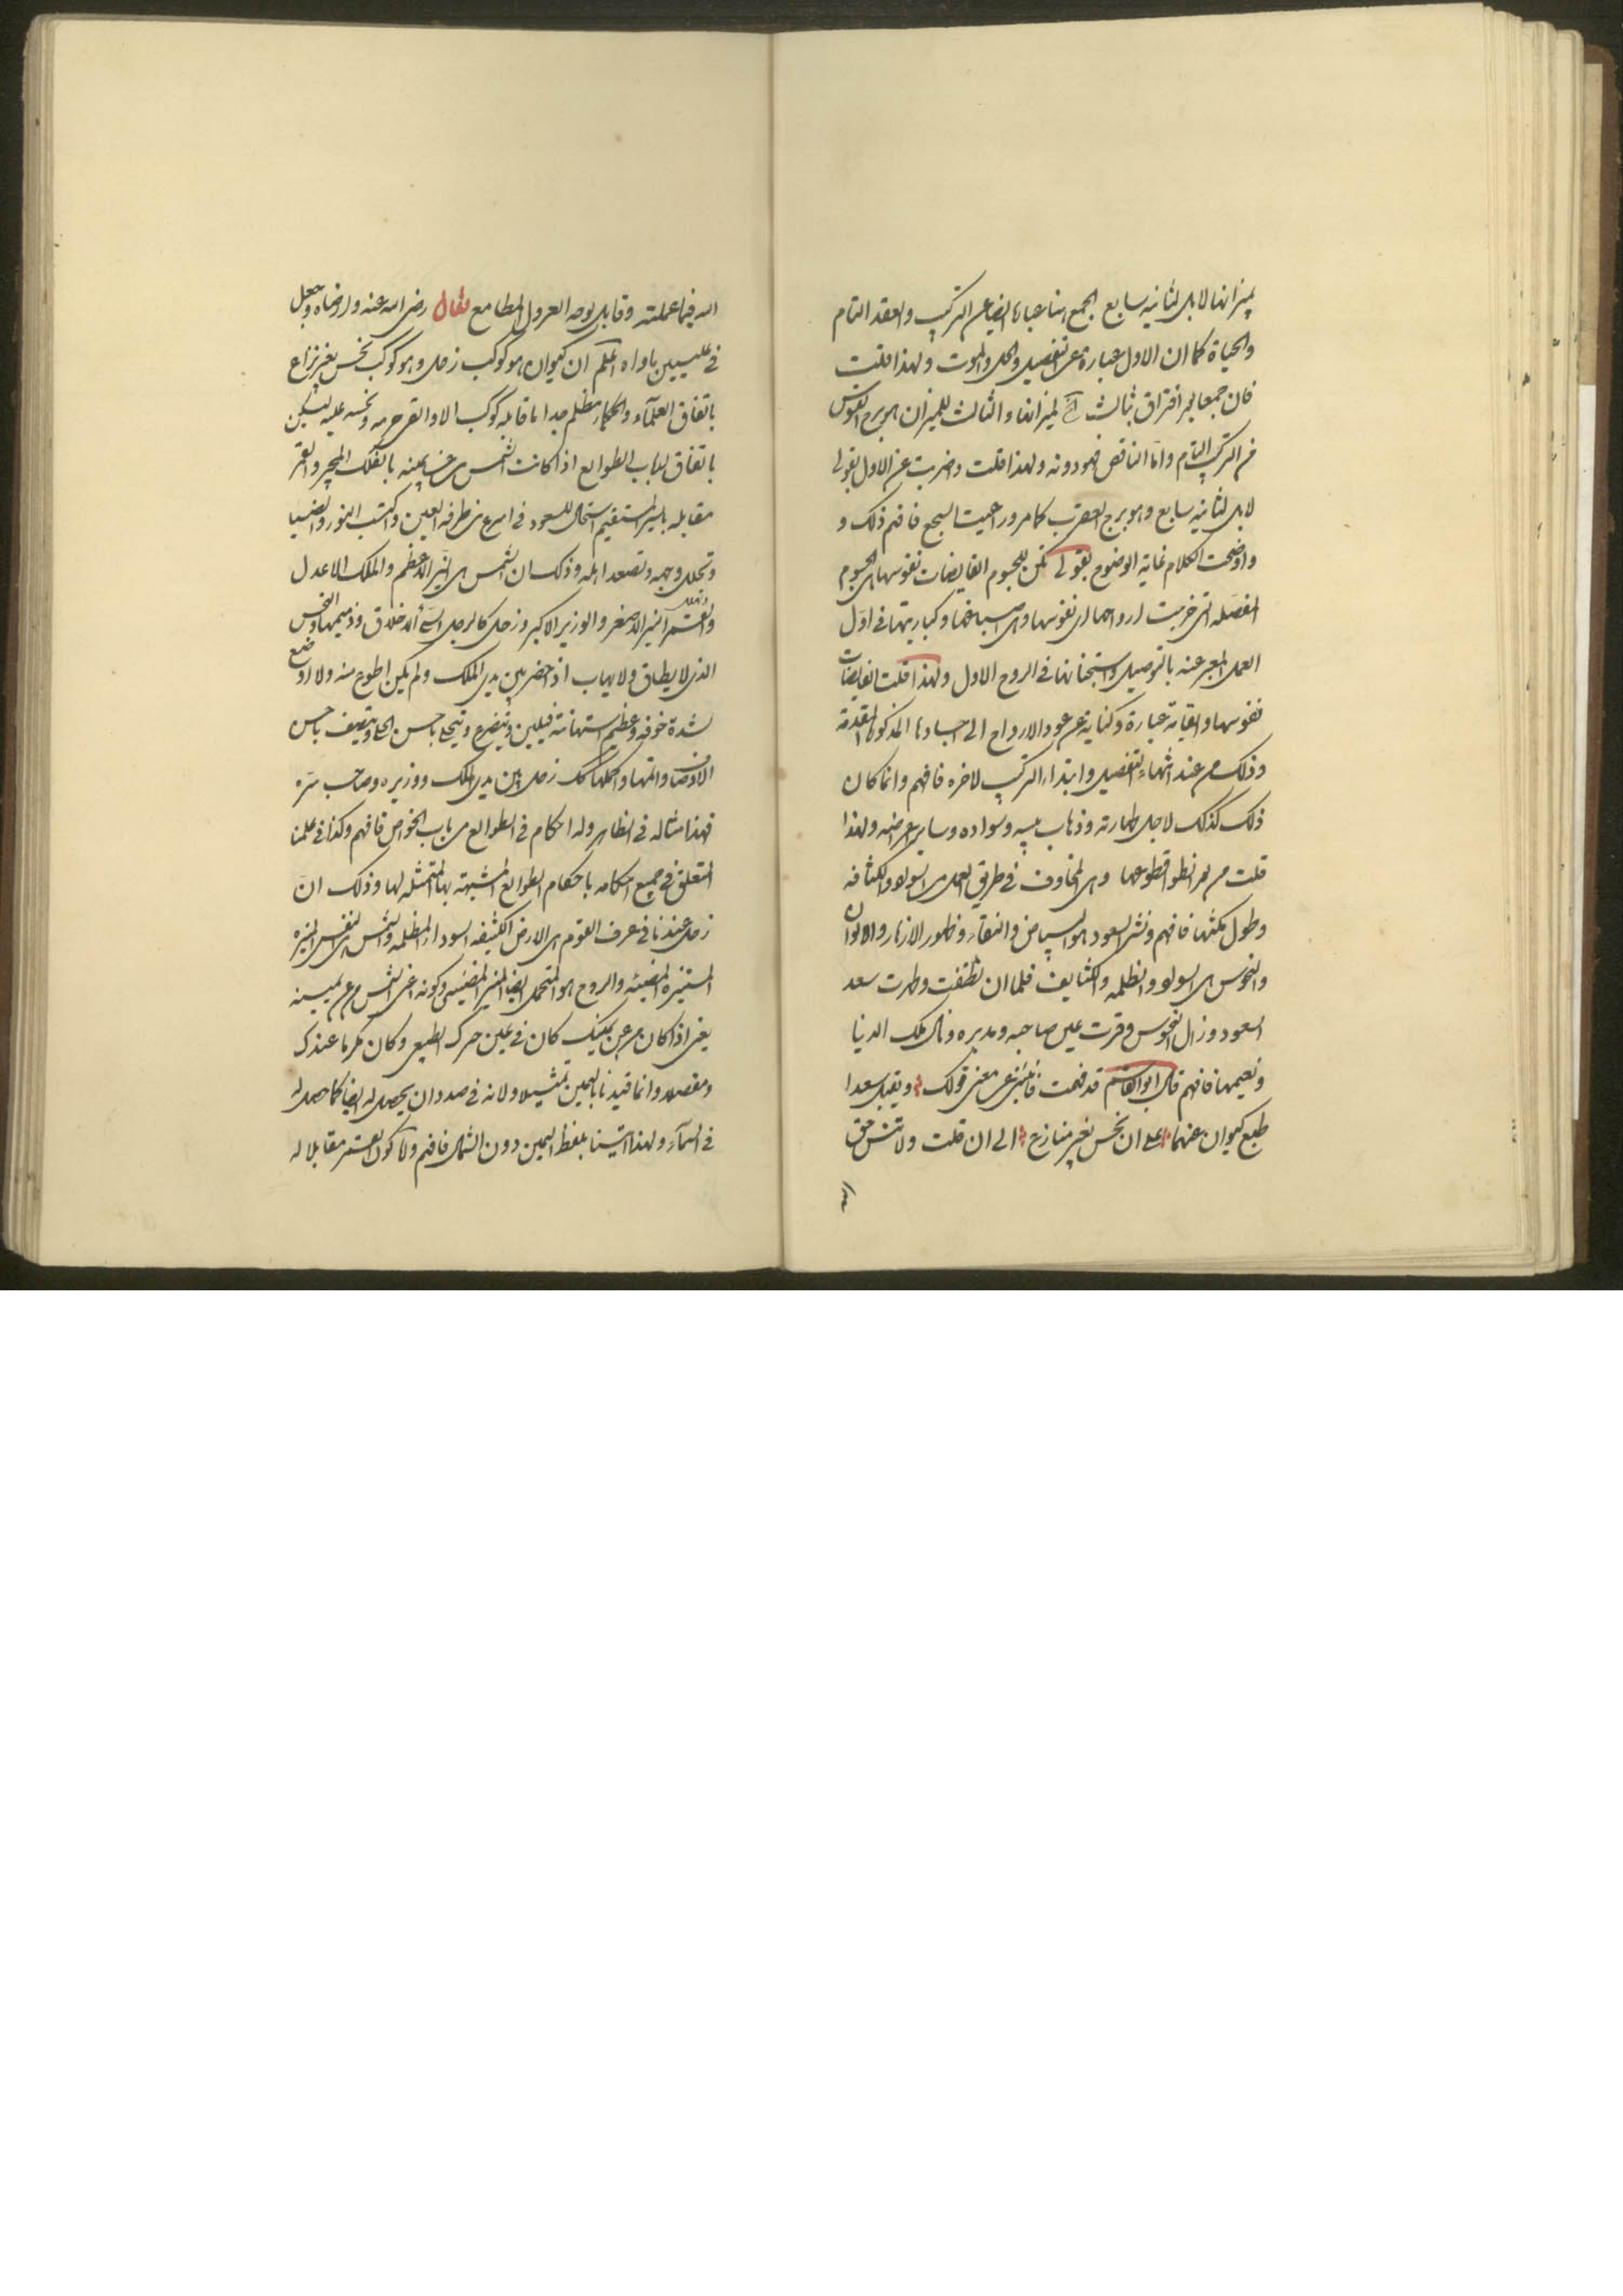 بميزانها لا بل لثانيه سابع الجمع هنا عبارة ايضا عن التركيب والعقد التام
والحياة كما ان الاول عبارة عن التفصيل والحل والموت ولهذا قلت
فان جمعا بعد افتراق بثالث لميزانها والثالث للميزان هو برج القوس
من التركيب التام واما الناقص فهو دونه ولهذا قلت وضربت عن الاول بقولى
لا بل لثانيه سابع وهو برج العقرب كما مر وراعيت السجع فافهم ذلك و
واوضحت الكلام غاية الوضوح بقولى لكن للجسوم الفايضات نفوسها هى الجسوم
المفصله التى خرجت ارواحها اى نفوسها وهى اصباغها وكباريتها فى اول
العمل المعبر عنه بالتوصيل واستجنانها فى الروح الاول ولهذا قلت الفايضات
نفوسها والقيامة عبارة وكناية عن عود الارواح الى اجسادها المذكورة المتقدمة
وذلك من عند انتهاء التفصيل وابتداء التركيب لاخره فافهم وانما كان
ذلك كذلك لاجل طهارته وذهاب يبسه وسواده وساير اعراضه ولهذا
قلت من بعد قطوعها وهى المخاوف فى طريق العمل من السواد والكثافة
وطول مكثها فافهم ونشر السعود هو البياض والنقاء وظهور الازهار والالوان
والنحوس هى السواد والظلمه والكثايف فلما ان تنظفت وطهرت سعد
السعود وزال النحوس وقرت عين صاحبه ومدبره ونال ملك الدنيا
ونعيمها فافهم قال ابو القاسم قد فهمت فانبئنى عن معنى قولك ويقبل سعدا
طبع كيوان عنهما على ان نحس بغير منازع الى ان قلت ولا تنس حق
الله فيما عملته وقابل بوجه العرول المطامع فقال رضى الله عنه وارضاه وجعل
فى عليين ماواه اعلم ان كيوان هو كوكب زحل وهو كوكب نحس بغير نزاع
باتفاق العلماء والحكماء مظلم جدا ما قابله كوكب الا وانقرح منه ونحسه عليه لكن
باتفاق ارباب الطوالع اذا كانت الشمس عن يمينه بالفلك المحير والقمر
مقابله بالسير المستقيم استحال للسعود فى اسرع من طرفة العين واكتسب النور والضيا
وتحلل وجهه وتصعد اله وذلك ان الشمس هى النير الاعظم والملك الاعدل
والقمر النير الاصغر والوزير الاكبر وزحل كالرجل السيء الاخلاق وذميمها والنحس
الذى لا يطاق ولا يهاب اذا حضر بين يدى الملك ولم يكن اطوع منه ولا اوضع
لشدة خوفه وعظيم استهانته فيلين ويتضرع ويتحلى باحسن الحلى ويتصف باحسن
الاوصاف واتمها واكملها كذلك زحل بين يدى الملك ووزيره وصاحب سره
فهذا مثاله فى الظاهر وله احكام فى الطوالع من باب الخواص فافهم وكذا فى علمنا
المتعلق فى جميع احكامه باحكام الطوالع المشبهة بها المتمثله لها وذلك ان
زحل عندنا فى عرف القوم هى الارض الكثيفه السوداء المظلمه والشمس هى النفس المنيره
المستنيره المضيئه والروح هو المتحمل ايضا المنير المضيىء وكونه اعنى الشمس عن يمينه
يعنى اذا كان عن يمينك كان فى يمين حرك الطبيع وكان مكرما عندك
ومفضلا وانما قيدنا باليمين تمثيلا ولانه فى صدد ان يحصل له ايضا كما حصل له
فى السماء ولهذا اتينا بلفظ اليمين دون الشمال فافهم ولا كون القمر مقابلا له